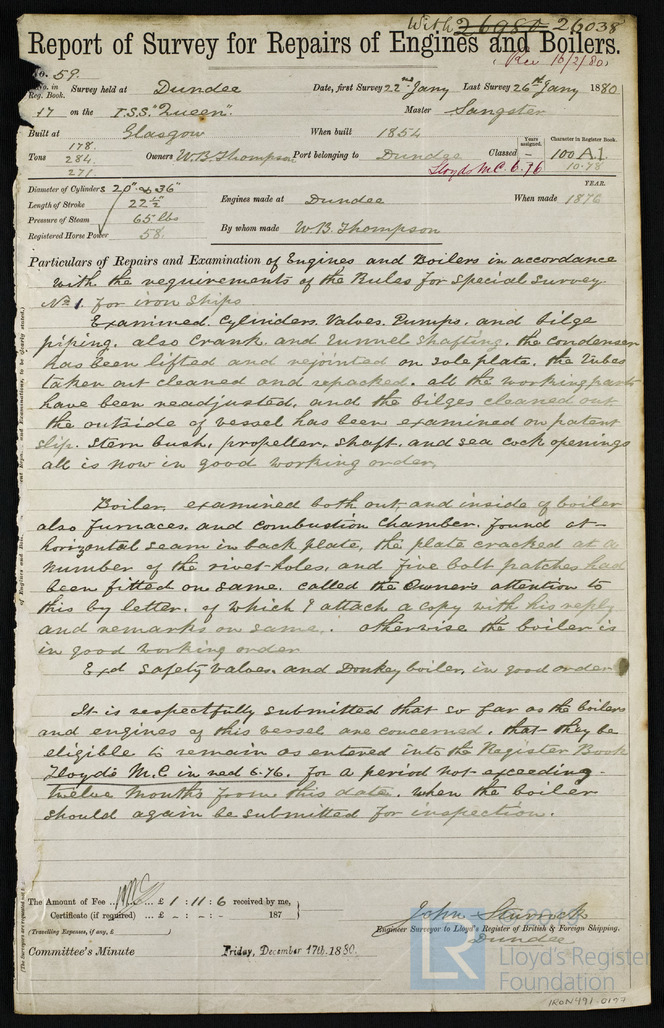 With 26980 26038
Report of Survey for Repairs of Engines and Boilers.
Rec 16/2/80
No. 59.
No. in Reg. Book. Survey held at Dundee Date, first Survey 22nd Jany Last Survey 26th Jany 1880
17 on the I.S.S. "Queen". Master Sangster
Built at Glasgow When built 1854 Years assigned. Character in Register Book.
Tons 178. 284. 271 Owners W.B. Thompson Port belonging to Dundee Classed — 100 A.1.
Lloyds M.C. 6.76 10.78
Diameter of Cylinders 20" & 36" YEAR.
Length of Stroke 22½" Engines made at Dundee When made 1876
Pressure of Steam 65 lbs
Registered Horse Power 58. By whom made W.B. Thompson
Particulars of Repairs and Examination of Engines and Boilers in accordance
with the requirements of the Rules for Special Survey.
No 1. for iron Ships
Examined. Cylinders. Valves. Pumps. and bilge
piping. also Crank. and tunnel shafting. the condenser
has been lifted and rejointed on sole plate. the tubes
taken out cleaned and repacked. all the working parts
have been readjusted. and the bilges cleaned out
the outside of vessel has been examined on patent
slip. stern bush, propeller, shaft. and sea cock openings
all is now in good working order.
Boiler. examined both out and inside of boiler
also furnaces. and combustion chamber. found at
horizontal seam in back plate, the plate cracked at a
number of the rivet-holes. and five bolt patches had
been fitted on same. called the Owners attention to
this by letter. of which I attach a copy with his reply
and remarks on same. otherwise the boiler is
in good working order
Exd safety valves. and Donkey boiler, in good order
It is respectfully submitted that so far as the boilers
and engines of this vessel are concerned. that they be
eligible to remain as entered into the Register Book
Lloyds M.C in red 6-76. for a period not exceeding
twelve months from this date. when the boiler
should again be submitted for inspection.
The Amount of Fee ... £ 1 : 11 : 6 received by me,
Certificate (if required) ... £ - : - : - 187
(Travelling Expenses, if any, £ )
John Sturrock
Engineer Surveyor to Lloyd's Register of British & Foreign Shipping.
Dundee
Committee's Minute Friday, December 17th. 1880.
LR
Lloyd's Register
Foundation
IRON491-0197